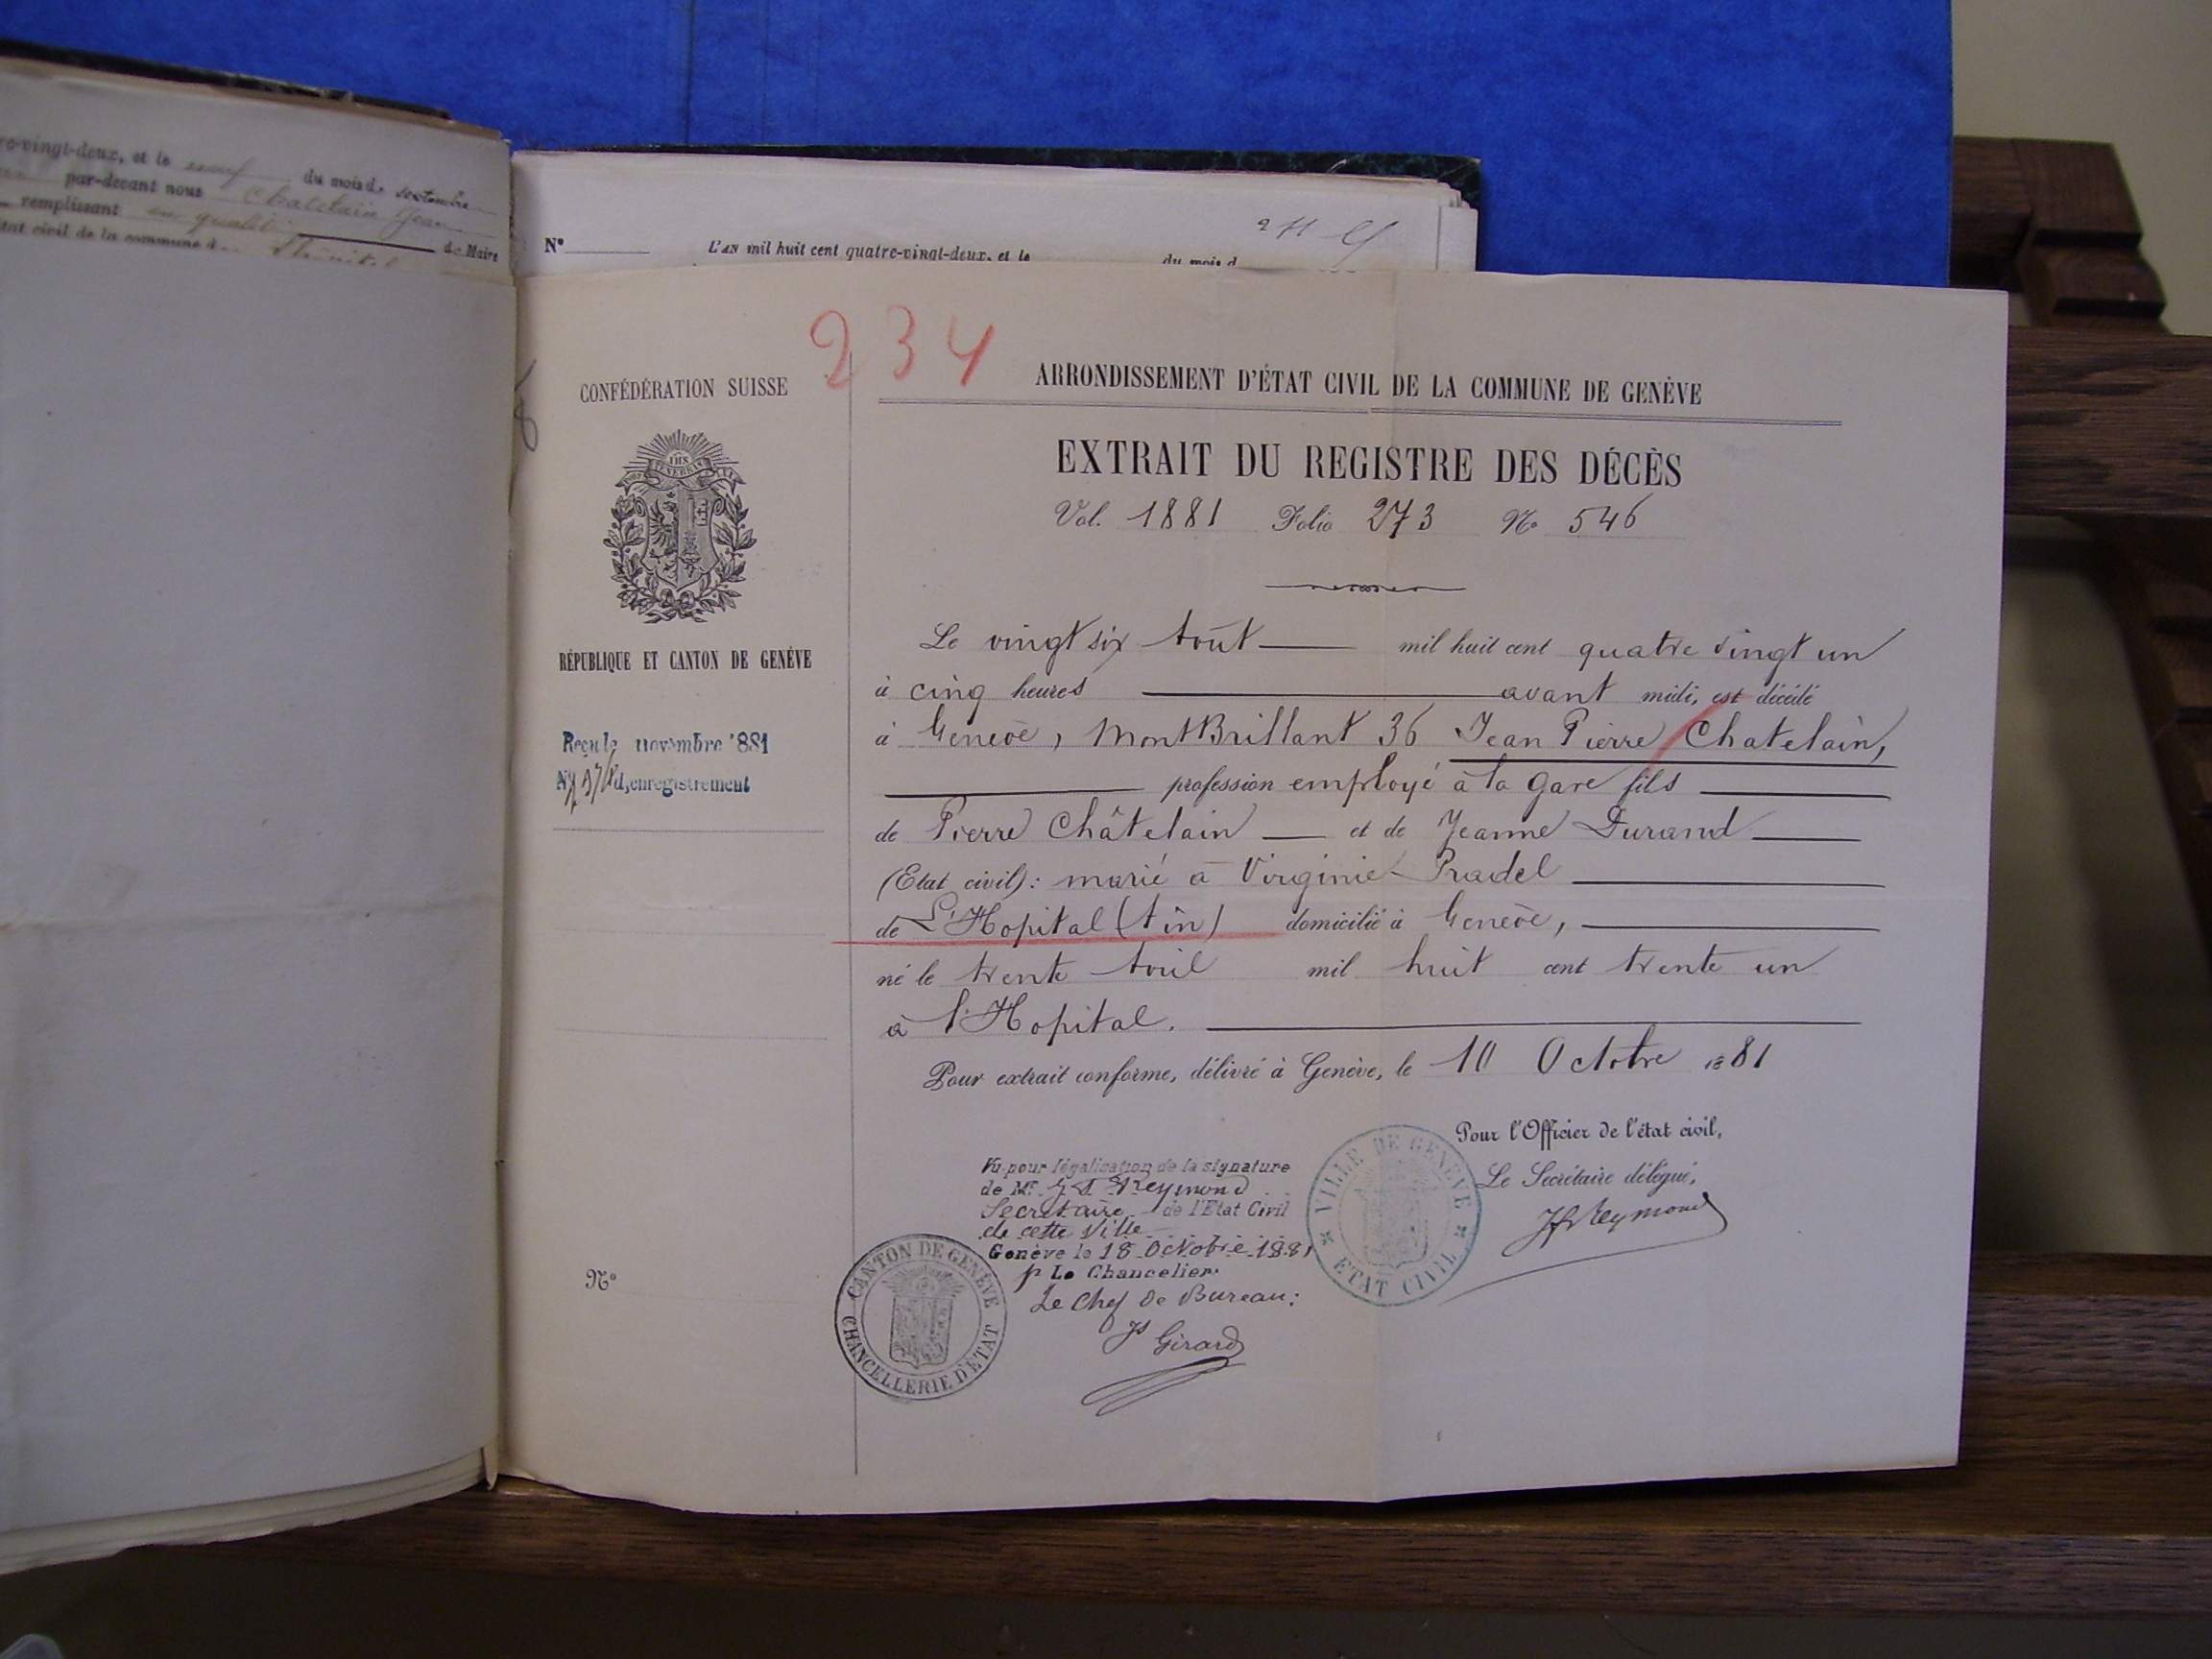 ro-vingt-deux, et le neuf du mois de septembre
par-devant nous Chatelain Jean
remplissant en qualité de Maire
état civil de la commune d
N° L'AN mil huit cent quatre-vingt-deux, et le du mois d
234
CONFÉDÉRATION SUISSE
RÉPUBLIQUE ET CANTON DE GENÈVE
Reçu le novembre 1881
N° d'enregistrement
N°
ARRONDISSEMENT D'ÉTAT CIVIL DE LA COMMUNE DE GENÈVE
EXTRAIT DU REGISTRE DES DÉCÈS
Vol. 1881 Folio 273 N° 546
Le vingt six Aout mil huit cent quatre vingt un
à cinq heures avant midi, est décédé
à Genève, MontBrillant 36 Jean Pierre Chatelain,
profession employé à la gare fils
de Pierre Châtelain et de Jeanne Durand
(Etat civil): marié à Virginie Pradel
de L'Hopital (Ain) domicilié à Genève,
né le trente Avril mil huit cent trente un
à l'Hopital.
Pour extrait conforme, délivré à Genève, le 10 Octobre 1881
Pour l'Officier de l'état civil,
Le Secrétaire délégué,
Reymond
VILLE DE GENÈVE
ETAT CIVIL
Vu pour légalisation de la signature
de Mr. Reymond
Secrétaire de l'Etat Civil
de cette Ville
Genève le 18 Octobre 1881
p Le Chancelier
Le Chef de Bureau:
Js Girard
CANTON DE GENÈVE
CHANCELLERIE D'ETAT